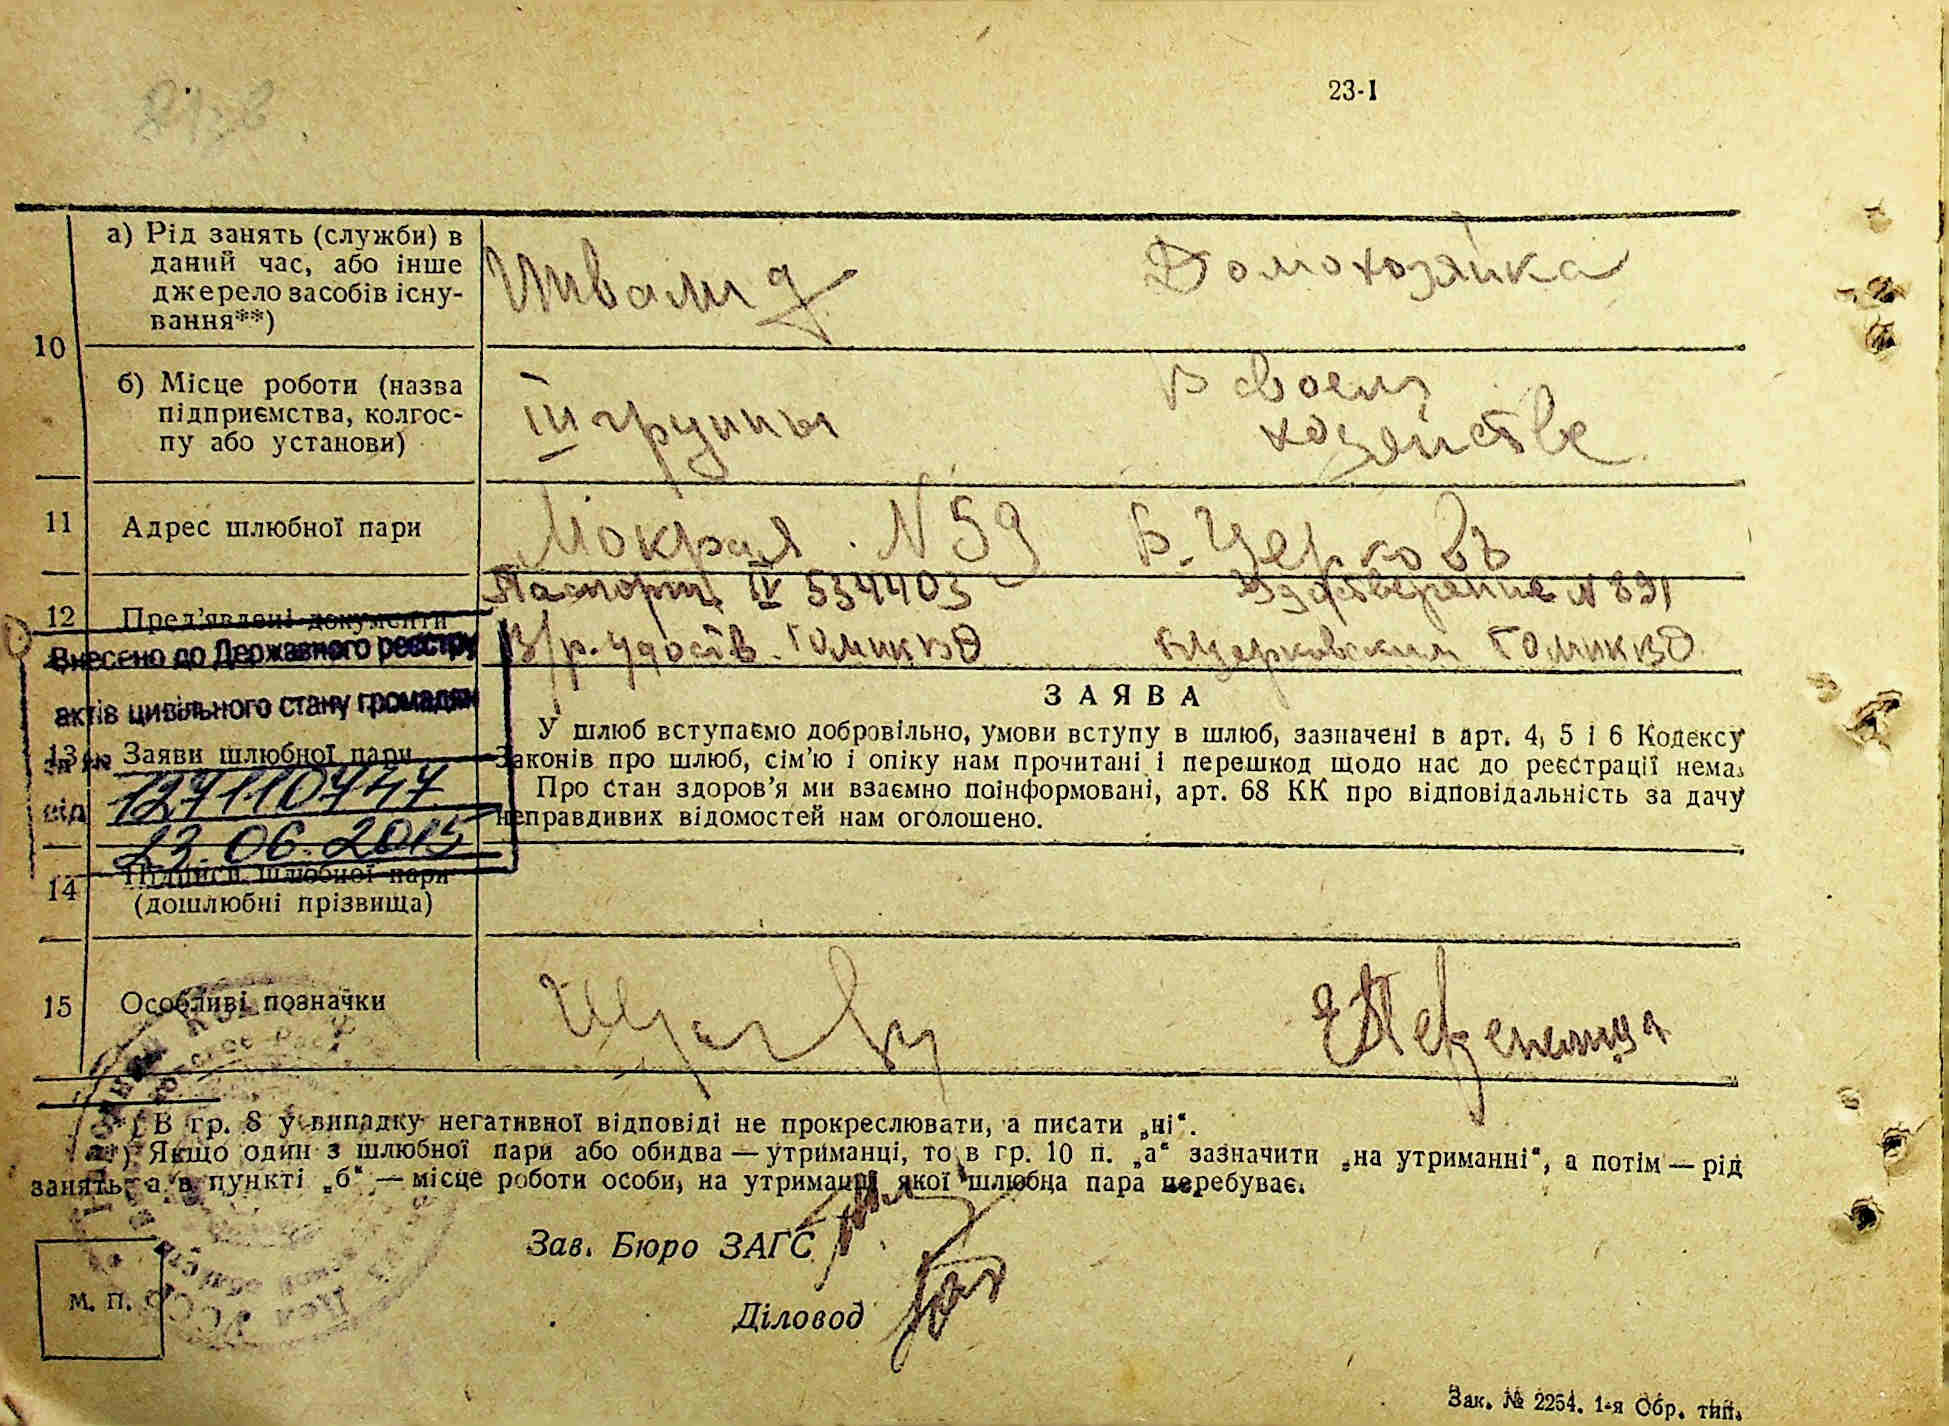 23-І
10
а) Рід занять (служби) в
даний час, або інше
джерело засобів існу-
вання**)
Инвалид
Домохозяйка
б) Місце роботи (назва
підприємства, колгос-
пу або установи)
III группы
В своем
хозяйстве
11
Адрес шлюбної пари
Мокрая N 59 Б. Церковь
12
Пред'явлені документи
Паспорт IV 534403
Удостверение N 891
В/р. удоств.
Бцерковским
Внесено до Державного реєстру
актів цивільного стану громадян
за №
127110747
від
23.06.2015
13
Заяви шлюбної пари
ЗАЯВА
У шлюб вступаємо добровільно, умови вступу в шлюб, зазначені в арт. 4, 5 і 6 Кодексу
Законів про шлюб, сім'ю і опіку нам прочитані і перешкод щодо нас до реєстрації нема.
Про стан здоров'я ми взаємно поінформовані, арт. 68 КК про відповідальність за дачу
неправдивих відомостей нам оголошено.
14
Підписи шлюбної пари
(дошлюбні прізвища)
15
Особливі позначки
*) В гр. 8 у випадку негативної відповіді не прокреслювати, а писати „ні“.
**) Якщо один з шлюбної пари або обидва — утриманці, то в гр. 10 п. „а“ зазначити „на утриманні“, а потім — рід
занять, а в пункті „б“ — місце роботи особи, на утриманні якої шлюбна пара перебуває.
Зав. Бюро ЗАГС
Діловод
М. П.
Зак. № 2254. 1-я Обр. тип.